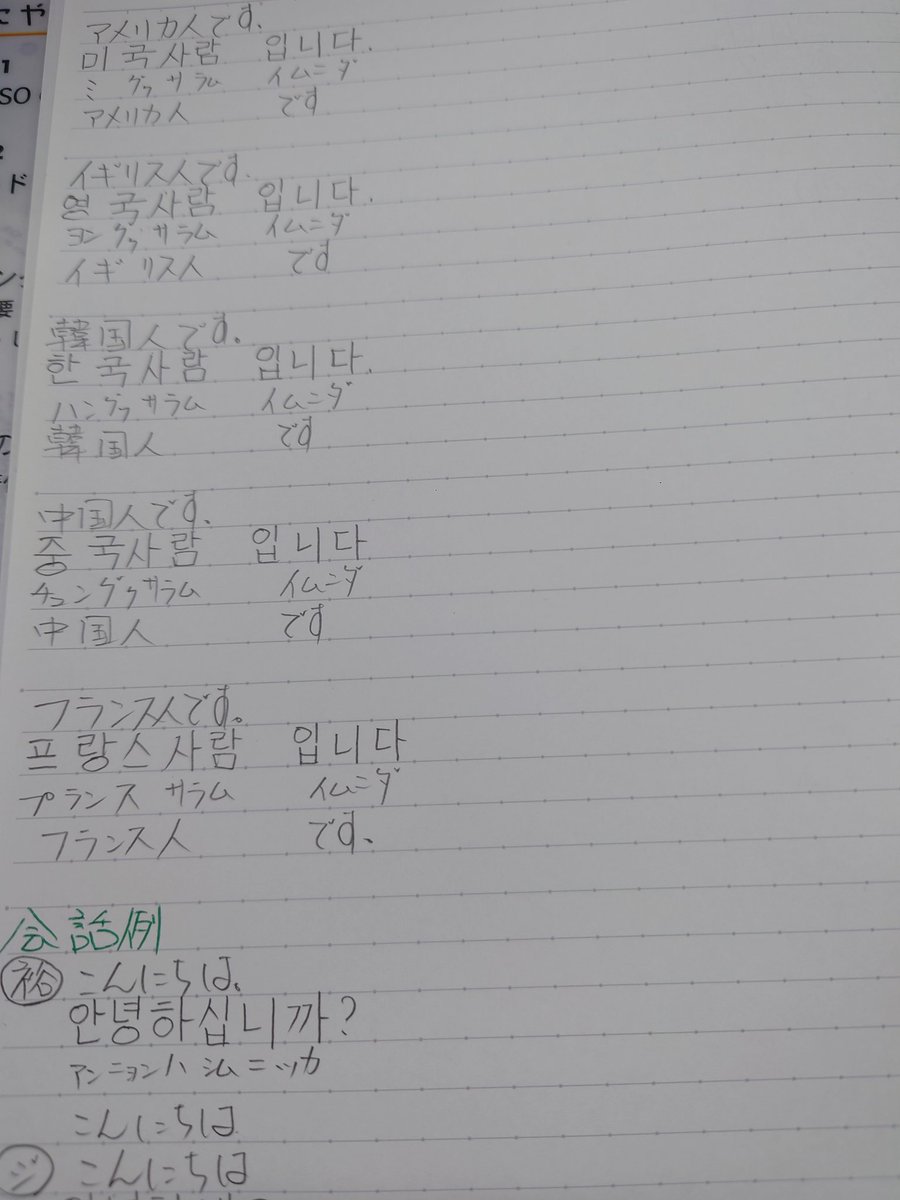 アメリカ人です.
미국사람 입니다.
ミ グク サラム イムニダ
アメリカ人 です
イギリス人です.
영국사람 입니다.
ヨン グク サラム イムニダ
イギリス人 です
韓国人です.
한국사람 입니다.
ハングク サラム イムニダ
韓国人 です
中国人です.
중국사람 입니다
チュングクサラム イムニダ
中国人 です
フランス人です。
프랑스사람 입니다
プランス サラム イムニダ
フランス人 です、
会話例
裕 こんにちは、
안녕하십니까?
アンニョンハ シムニッカ
こんにちは
ジ こんにちは